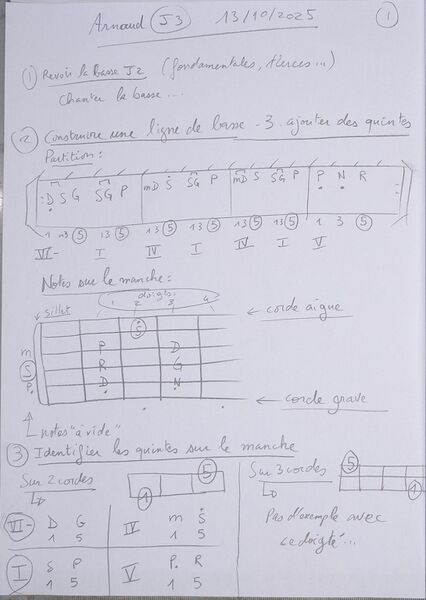 Arnaud J3 13/10/2025 1
1 Revoir la basse J2 (fondamentales, tierces...)
Chanter la basse...
2 Construire une ligne de basse - 3. ajouter des quintes
Partition :
D S G SG P mD S SG P mD S SG P P N R
1 m3 5 1 3 5 1 3 5 1 3 5 1 3 5 1 3 5 1 3 5
VI- I IV I IV I V
Notes sur le manche :
doigts:
sillet 1 2 3 4
corde aigue
S
m P D
S R G
P D N
corde grave
notes "à vide"
3 Identifier les quintes sur le manche
Sur 2 cordes 5 1
Sur 3 cordes 5 1
VI- D G IV m S
1 5 1 5
Pas d'exemple avec
ce doigté...
I S P V P R
1 5 1 5